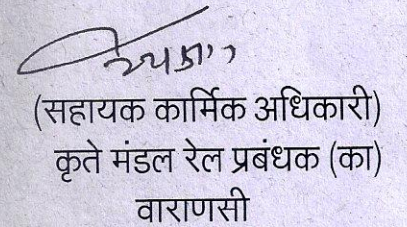 (सहायक कार्मिक अधिकारी)
कृते मंडल रेल प्रबंधक (का)
वाराणसी